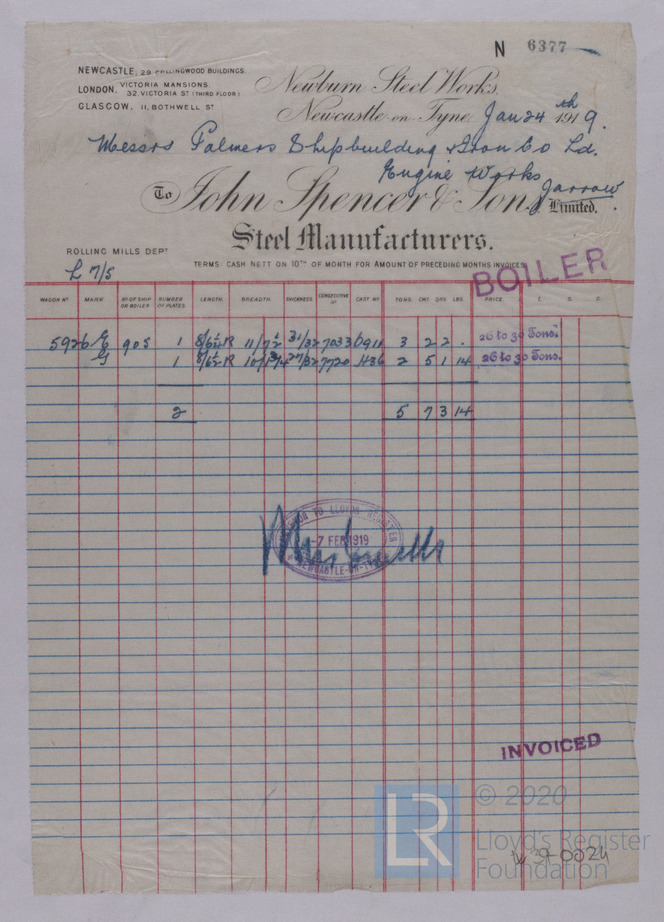 N 6377
NEWCASTLE, 29 COLLINGWOOD BUILDINGS.
LONDON, VICTORIA MANSIONS
32, VICTORIA ST (THIRD FLOOR)
GLASGOW, 11, BOTHWELL ST
Newburn Steel Works.
Newcastle-on-Tyne. Jan 24th 1919.
Messrs Palmers Shipbuilding & Iron Co Ld.
Engine Works
Jarrow
To John Spencer & Sons, Limited.
Steel Manufacturers.
ROLLING MILLS DEPT
L 7/5
TERMS: CASH NETT ON 10TH OF MONTH FOR AMOUNT OF PRECEDING MONTHS INVOICES
BOILER
WAGON No MARK No OF SHIP OR BOILER NUMBER OF PLATES. LENGTH. BREADTH. THICKNESS CONSECUTIVE No CAST No TONS. CWT. QRS. LBS. PRICE. £. S. D.
5926 905 1 8/6½ R 11/7½ 31/32 7033 3 2 2 . 26 to 30 Tons.
1 8/6½ R 27/32 7720 H36 2 5 1 14 26 to 30 Tons.
2 5 7 3 14
TO LLOYDS REGISTER
-7 FEB 1919
NEWCASTLE-ON-TYNE
INVOICED
LR © 2020
Lloyd's Register
Foundation
0024